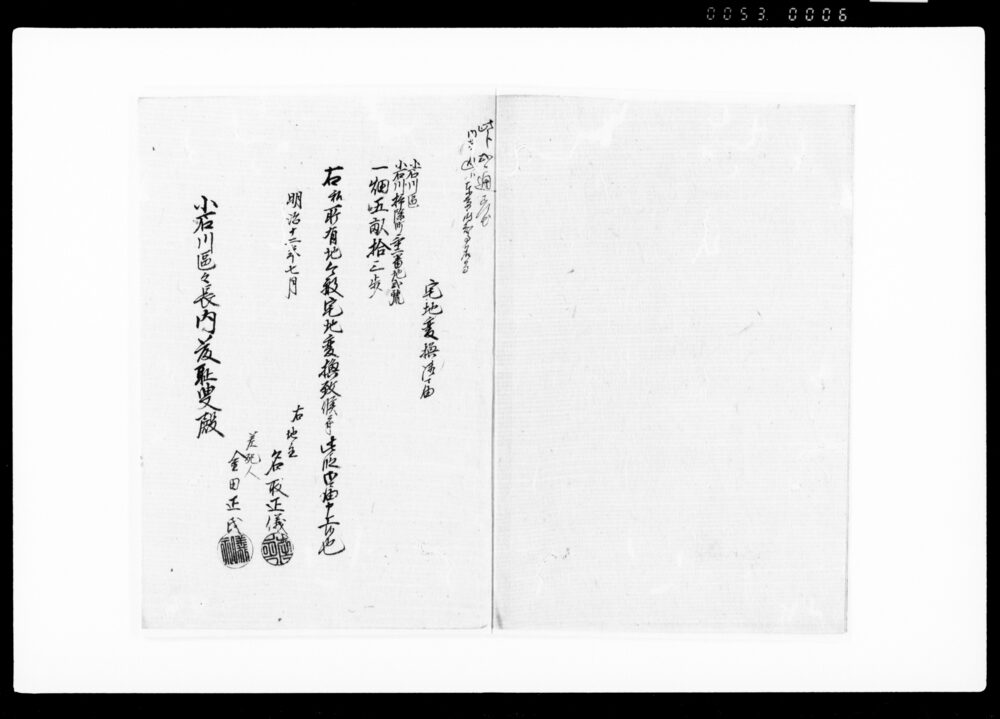 0053. 0006
宅地変換済御届
小石川區
小石川掃除町
一畑五畝拾三歩
右私所有地今般宅地変換致候条此段御届申上候也
明治十二年七月
右地主
名取正儀
差配人
金田正民
小石川區々長内藤耻叟殿